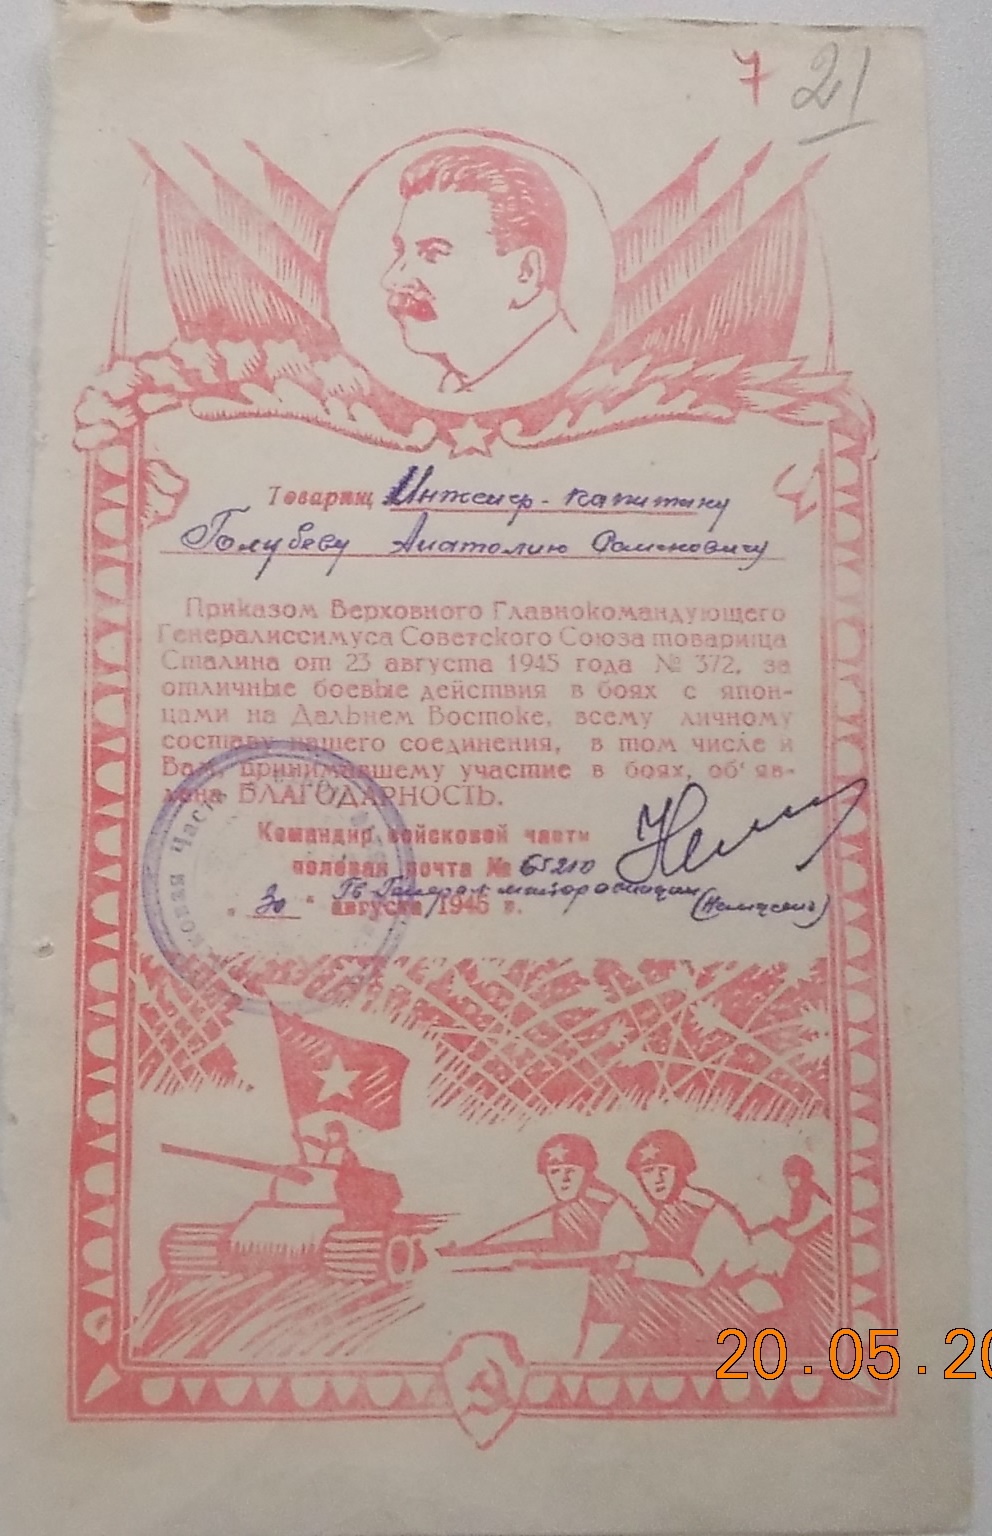 7 21
Товарищ Инженер-капитану
Голубеву Анатолию Семеновичу
Приказом Верховного Главнокомандующего
Генералиссимуса Советского Союза товарища
Сталина от 23 августа 1945 года № 372, за
отличные боевые действия в боях с япон-
цами на Дальнем Востоке, всему личному
составу нашего соединения, в том числе и
Вам, принимавшему участие в боях, об'яв-
лена БЛАГОДАРНОСТЬ.
Командир войсковой части
полевая почта № 65210
Гв Генерал-майор
„ 30 " августа 1945 г.
Часть
20.05.20